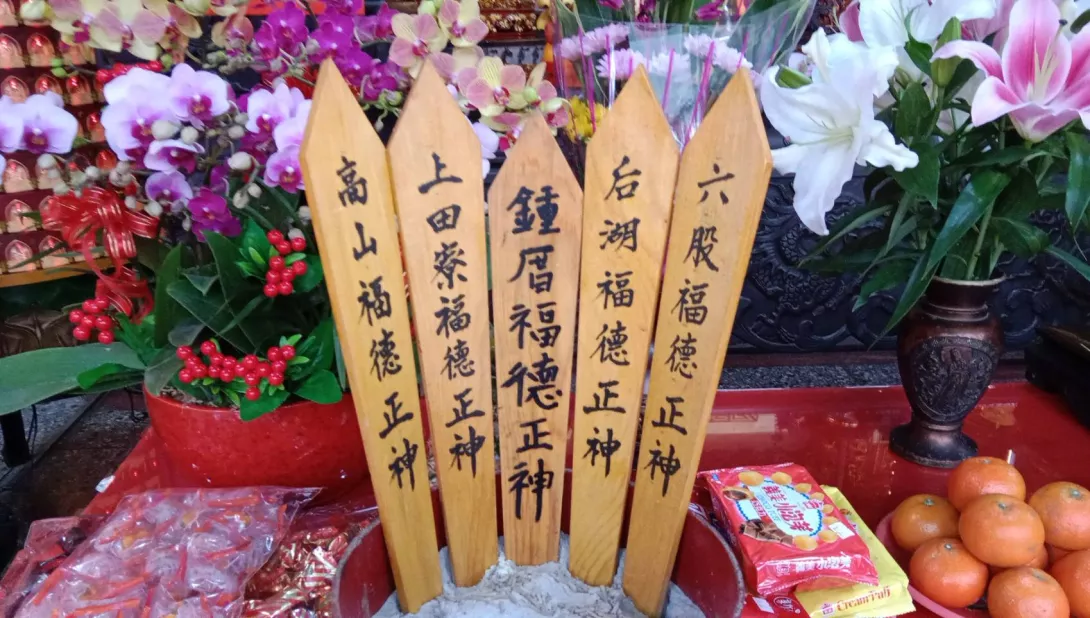 高山福德正神
上田寮福德正神
鍾厝福德正神
后湖福德正神
六股福德正神
義美
小泡芙
Cream Puff